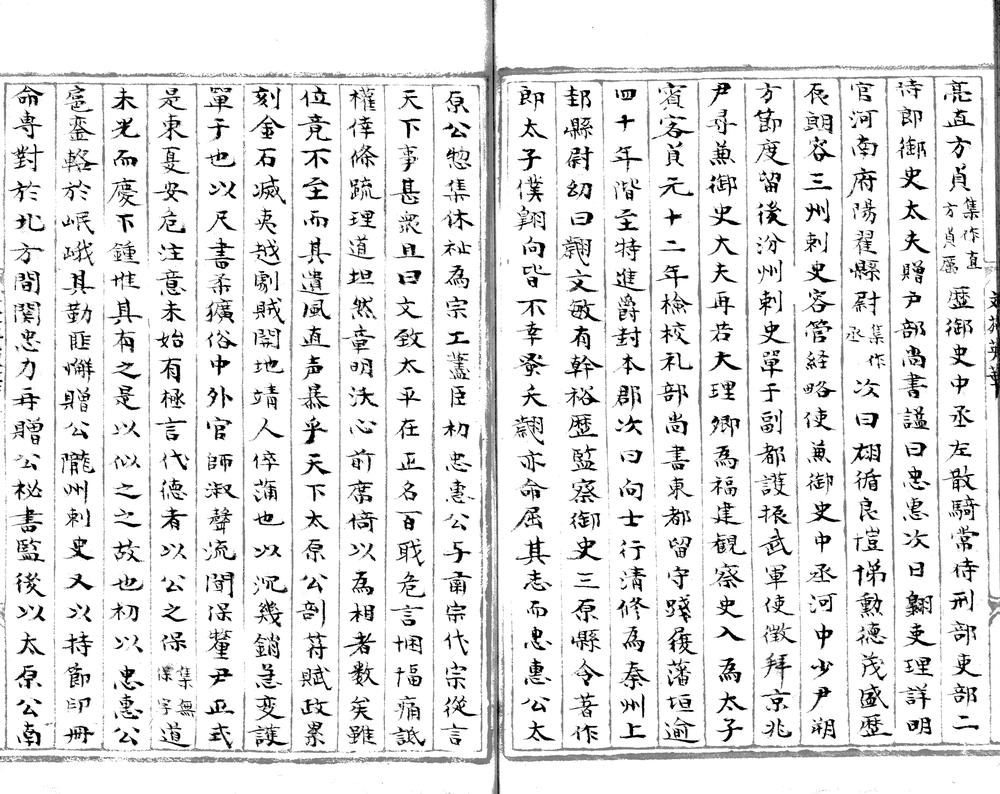 亮直方貞集作直方貞厲歷御史中丞左散騎常侍刑部吏部二
侍郎御史大夫贈戸部尚書謚曰忠惠次曰翱吏理詳明
官河南府陽翟縣尉集作丞次曰翃循良愷悌勲德茂盛歷
辰朗容三州刺史容管経略使兼御史中丞河中少尹朔
方節度留後汾州刺史單于副都護振武軍使徵拜京兆
尹尋兼御史大夫再若大理卿為福建觀察史入為太子
賓客貞元十二年檢校礼部尚書東都留守踐履藩垣逾
四十年階至特進爵封本郡次曰向士行清修為秦州上
邽縣尉幼曰翷文敏有幹裕歷監察御史三原縣令著作
郎太子僕翱向皆不幸發夭翷亦命屈其志而忠惠公太
原公惣集休祉為宗工藎臣初忠惠公与肅宗代宗從言
天下事甚衆且曰文致太平在正名百職危言悃愊痛詆
權倖條疏理道坦然章明沃心前席倚以為相者数矣雖
位竟不至而其遺風直声暴乎天下太原公剖苻賦政累
刻金石滅夷越劇賊閞地靖人倅蒲也以沉幾銷急変護
單于也以尺書柔獷俗中外官師淑聲流聞保釐尹正式
是東夏安危注意未始有極言代德者以公之保集無保字道
未光而慶下鍾惟其有之是以似之之故也初以忠惠公
扈鑾輅於岷峨其勤匪懈贈公隴州刺史又以持節印冊
命専對於北方閒関忠力再贈公祕書監後以太原公南